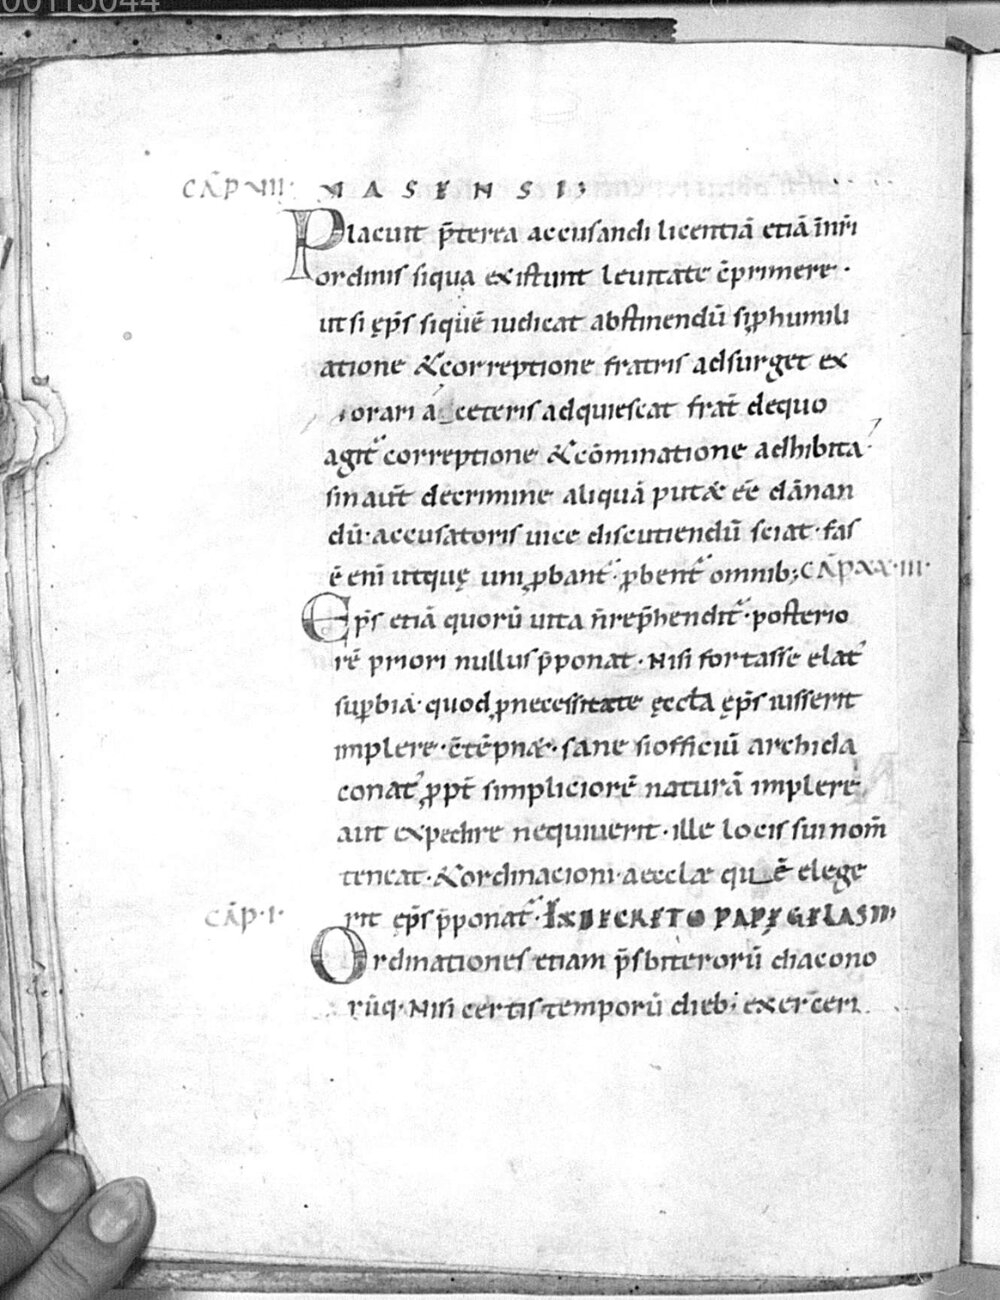 CAP VII· MASENSI;
Placuit p̄terea accusandi licentiā etiā īnr̄i
ordinis siqua existunt leuitate c̄primere·
ut si ep̄s siquē iudicat abstinendū si ꝑ humili
atione & correptione fratris adsurget ex
orari a ceteris adquiescat frat̄ dequo
agit᷑ correptione & cōminatione adhibita·
sin aut̄ decrimine aliquā putæ eē dānan
dū· accusatoris uice discutiendū sciat· fas
ē enī utquę uni ꝓbant᷑· ꝓbent᷑ omnib; CAP XX·III·
Ep̄s etiā quorū uita n̄ rep̄hendit᷑· posterio
rē priori nullus p̄ponat· Nisi fortasse elat᷑
suꝑbia· quod ꝑ necessitate ęccła ęp̄s iusserit
implere· c̄tēpnæ· sane si officiū archidia
conat᷑ ꝓpt̄ simpliciorē naturā implere
aut expedire nequiuerit· ille locis sui nom̄
teneat· & ordinacioni aecclæ quē elege
rit ęp̄s p̄ponat᷑· EX DECRETO PAPĘ GELASII
CAP·I·
Ordinationes etiam p̄sbiterorū diacono
rūq· Nisi certis temporū dieb; exerceri